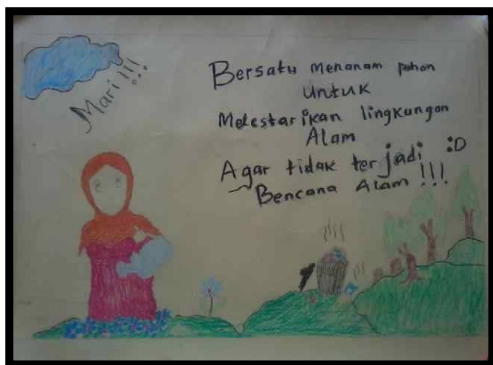 Mari!!!
Bersatu menanam pohon
untuk
Melestarikan lingkungan
Alam
Agar tidak terjadi :D
Bencana Alam !!!